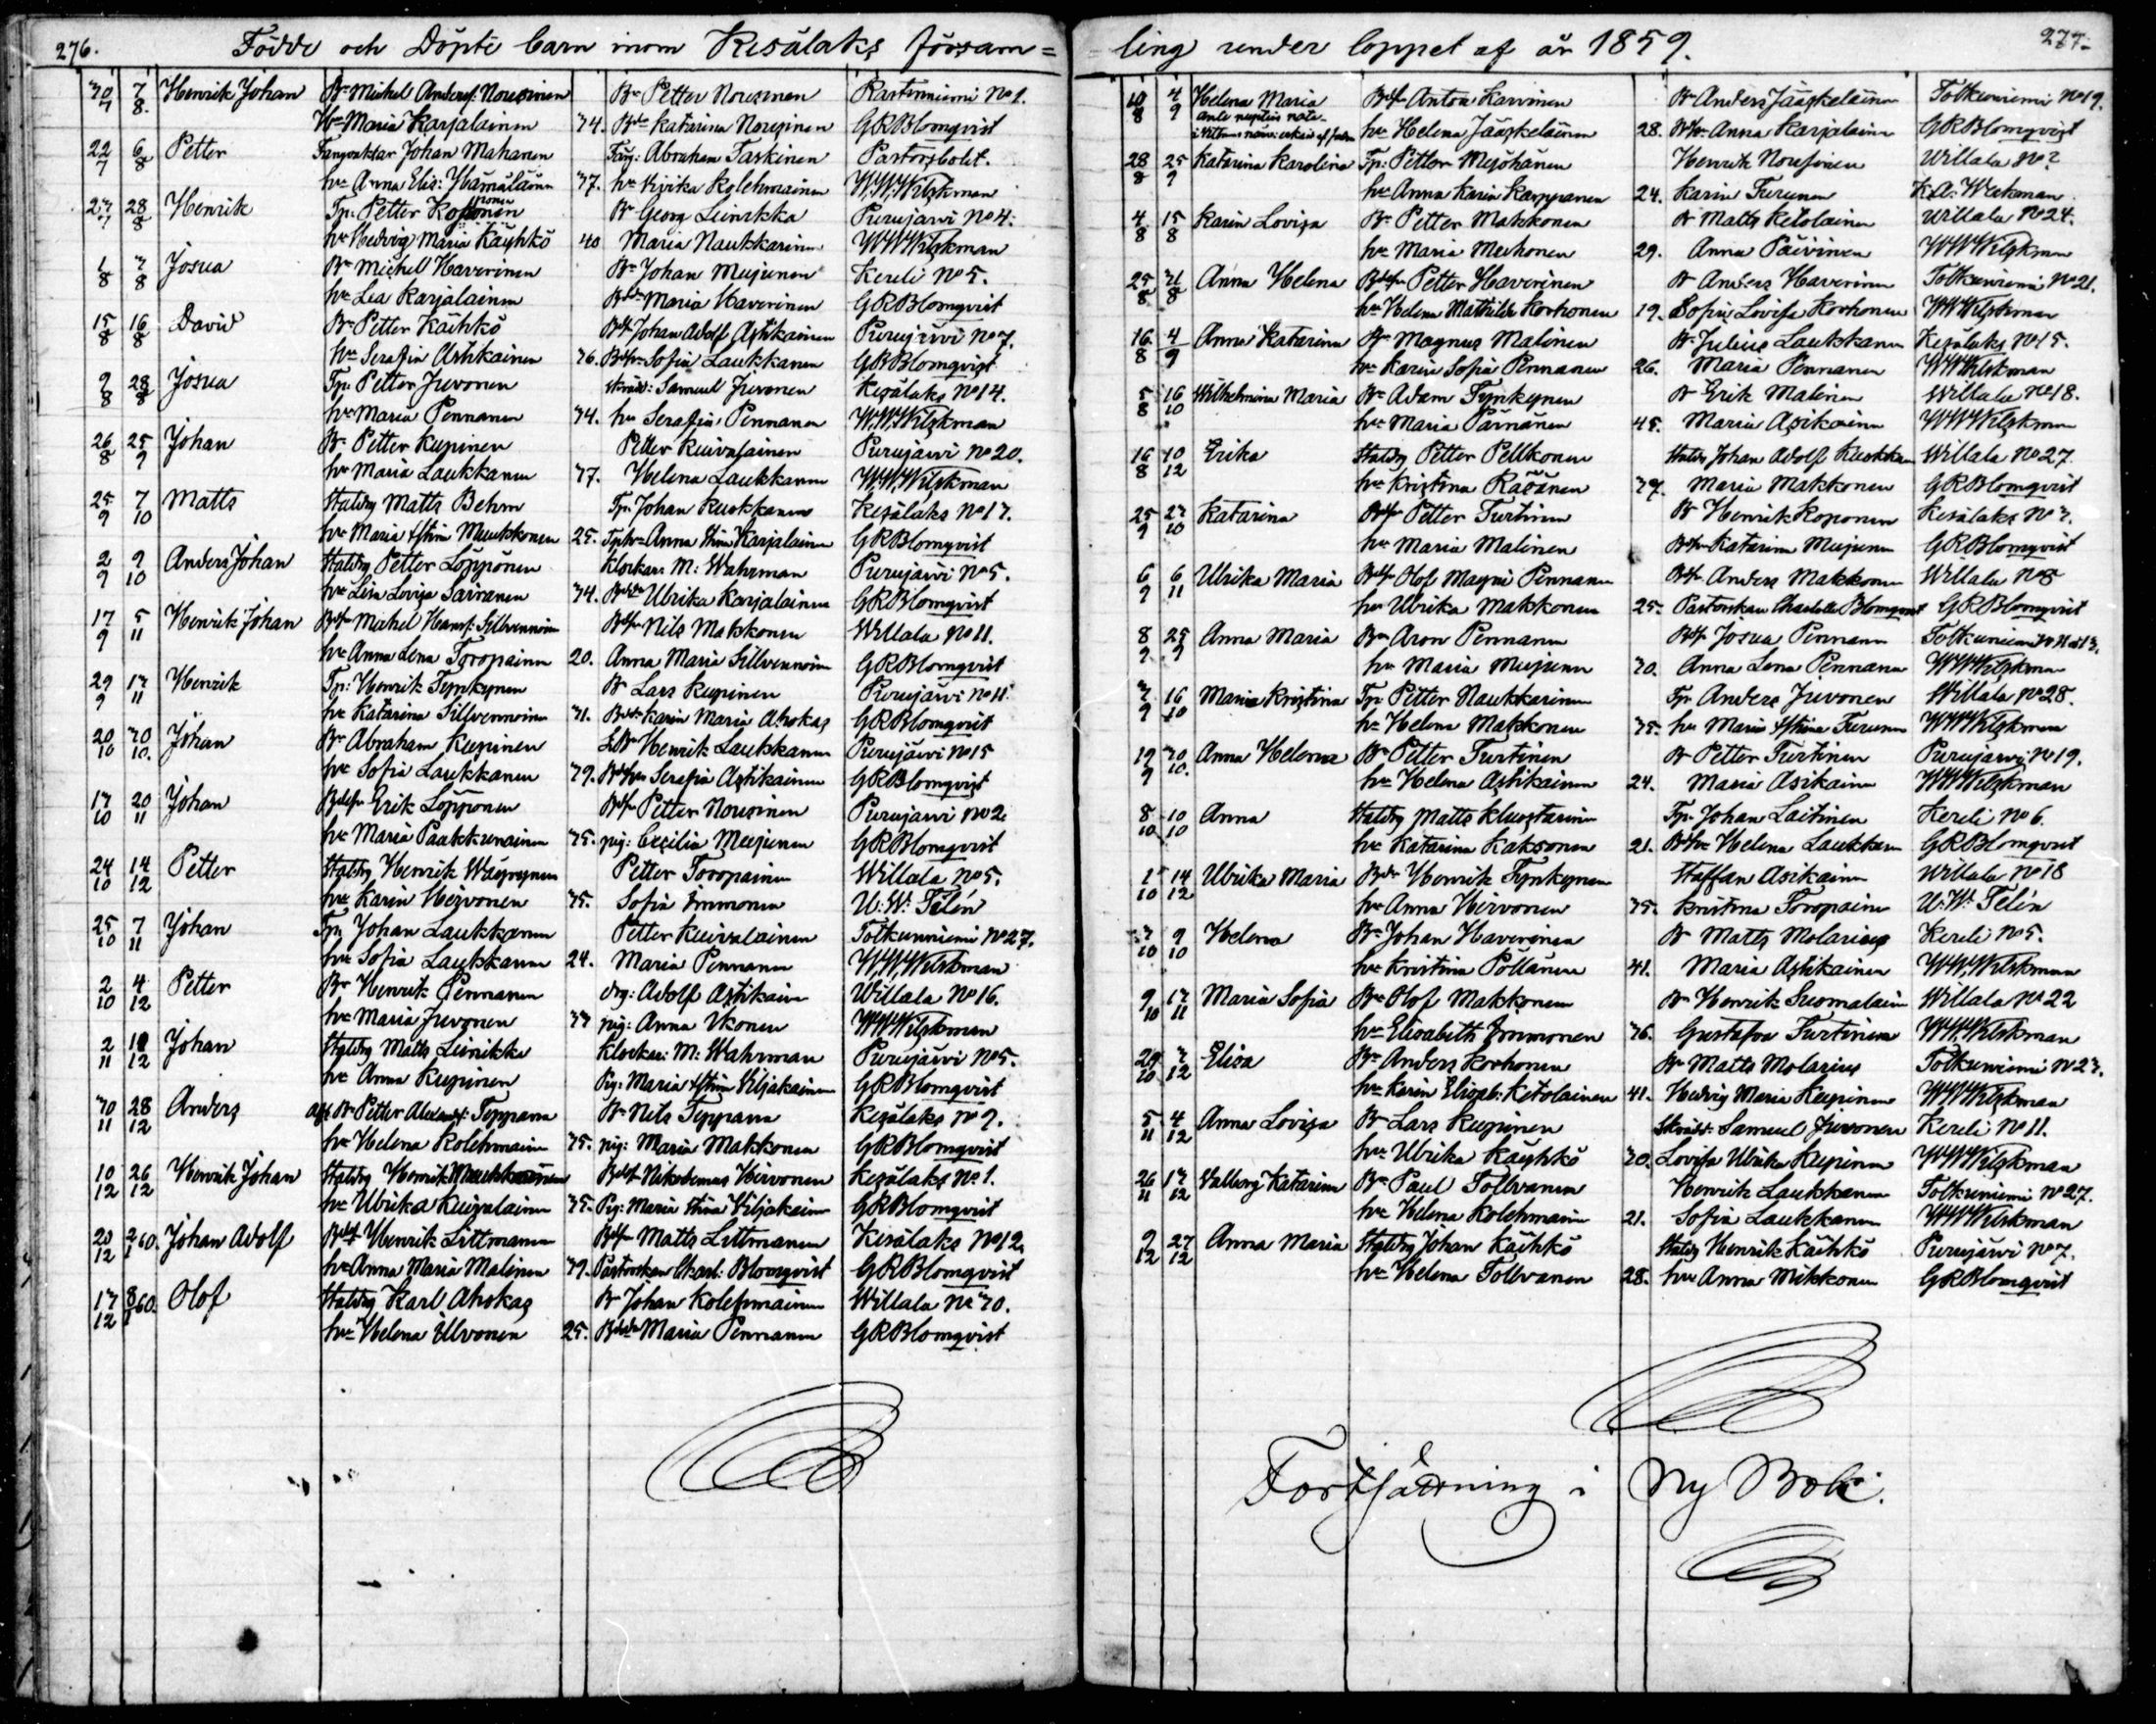 276.
Födde och Döpte barn inom Kesälaks försam=
30/7 7/8. Henrik Johan Br Michel Andersf: Nousinen Br Petter Nousinen Rastinniemi No 1.
Hu Maria Karjalainen 34. Bdr Katarina Nousinen GRBlomqvist
22/7 6/8 Petter Fångvaktar Johan Mahanen Fång: Abraham Taskinen Pastorsbolet.
hu Anna Elis: Hämäläinen 37. hu Kolehmainen W.W.Wilskman
27/7 28/8 Henrik Tp: Petter Br Georg Leinikka Purujärvi No 4.
hu Hedvig Maria Käyhkö 40 Maria Naukkarinen WWWilskman
1/8 7/8 Josua Br Michel Haverinen Br Johan Meijunen Kereli No 5.
hu Lea Karjalainen Bdr Maria Haverinen GRBlomqvist
15/8 16/8 David Br Petter Käihkö Bdf Johan Adolf Astikainen Purujärvi No 7.
hu Serafia Astikainen 36. Sofia Laukkanen GRBlomqvist
9/8 28/8 Josua Tp: Petter Juvonen Skräd: Samuel Juvonen Kesälaks No 14.
hu Maria Pennanen 34. hu Serafia Pennanen W.W.Wilskman
26/8 25/9 Johan Br Petter Kupinen Petter Kuivalainen Purujärvi No 20.
hu Maria Laukkanen 37. Helena Laukkanen W.W.Wilskman
25/9 7/10 Matts Staldrg Matts Behm Tp: Johan Kuokkanen Kesälaks No 17.
hu Maria Stina Muukkonen 25. Tphu Anna Stina Karjalainen GRBlomqvist
2/9 9/10 Anders Johan Staldrg Petter Löppönen Klockar: M: Wahrman Purujärvi No 5.
hu Lisa Lovisa Sairanen 34. Ulrika Karjalainen GRBlomqvist
17/9 5/11 Henrik Johan Bdf Michel Hansf: Sillvennoinen Bdf Nils Makkonen Willala No 11.
hu Anna Lena Toropainen 20. Anna Maria Sillvennoinen GRBlomqvist
29/9 17/11 Henrik Tp: Henrik Tynkynen Br Lars Kupinen Purujärvi No 11.
hu Katarina Sillvennoinen 31. Karin Maria Ahokas GRBlomqvist
20/10 30/10. Johan Br Abraham Kupinen Henrik Laukkanen Purujärvi No 15
hu Sofia Laukkanen 39. Serafia Astikainen GRBlomqvist
17/10 20/11 Johan Bdf Erik Löpponen Bdf Petter Nousinen Purujärvi No 2.
hu Maria Paakkunainen 35. pig: Cecilia Meijunen GRBlomqvist
24/10 14/12 Petter Staldrg Henrik Wäyrynen Petter Toropainen Willala No 5.
hu Karin Hirvonen 35. Sofia Immonen U:W: Telén
25/10 7/11 Johan Tp Johan Laukkanen Petter Kuivalainen Totkunniemi No 27.
hu Sofia Laukkanen 24. Maria Pennanen W.W.Wilskman
2/10 4/12 Petter Br Henrik Pennanen drg: Adolf Astikain Willala No 16.
hu Maria Juvonen 37 pig: Anna Ikonen WWWilskman
2/11 /12 Johan Staldrg Matts Leinikka Klockar: M: Wahrman Purujärvi No 5.
hu Anna Kupinen Pig: Maria Stina Viljakainen GRBlomqvist
30/11 28/12 Anders Br Petter Alexandf: Tepprana Br Nils Tepprana Kesälaks No 9.
hu Helena Kolehmainen 35. pig: Maria Makkonen GRBlomqvist
10/12 26/12 Henrik Johan Staldrg Henrik Bdf Nikodemus Hirvonen Kesälaks No 1.
hu Ulrika Kuivalainen 35. Pig: Maria Stina Viljakain GRBlomqvist
20/12 2/1 60. Johan Adolf Bdf Henrik Littmanen Bdf Matts Littmanen Kesälaks No 12.
hu Anna Maria Malinen 39. Pastorskan Charl: Blomqvist GRBlomqvist
17/12 8/1 60. Olof Staldrg Karl Ahokas Br Johan Kolehmainen Willala No 30.
hu Helena Ulvonen 25. Maria Pennanen GRBlomqvist
277.
ling under loppet af år 1859.
10/8 4/9 Helena Maria Bdf Anton Karvinen Br Anders Jääskeläinen Totkunniemi No 19.
ante nuptias nata hu Helena Jääskeläinen 28. Anna Karjalain GRBlomqvist
28/8 25/9 Katarina Karolina Tp: Petter Mejöhänen Henrik Nousinen Willala No 2
hu Anna Karin Karppanen 24. Karin Turunen K.A: Weckman
4/8 15/8 Karin Lovisa Br Petter Makkonen Br Matts Ketolainen Willala No 24.
hu Maria Muhonen 29. Anna Päivinen WWWilskman
25/8 31/8 Anna Helena Bdf Petter Haverinen Br Anders Haverinen Totkunniemi No 21.
hu Helena Mathilda Korhonen 19. Sofia Lovisa Korhonen WWWilskman
16/8 4/9 Anna Katarina Br Magnus Malinen Br Julius Laukkanen Kesälaks No 15.
hu Karin Sofia Pennanen 26. Maria Pennanen WWWilskman
5/8 16/10 Wilhelmina Maria Br Adam Tynkynen Br Erik Malinen Willala No 18.
hu Maria Pärnänen 45. Maria Asikainen WWWilskman
16/8 10/12 Erika Staldrg Petter Pellkonen Staldrg Johan Adolf Kuokkanen Willala No 27
hu Kristina Räsänen 37. Maria Makkonen GRBlomqvist
25/9 27/10 Katarina Bdf Petter Turtinen Br Henrik Koponen Kesälaks No 3.
hu Maria Malinen Katarina Meijunen GRBlomqvist
6/9 6/11 Ulrika Maria Bdf Olof Magni Pennanen Bdf Anders Makkonen Willala No 8
hu Ulrika Makkonen 25. Pastorskan Charlotte Blomqvist GRBlomqvist
8/9 25/9 Anna Maria Br Aron Pennanen Bdf Josua Pennanen Totkunniemi
hu Maria Meijunen 30. Anna Lena Pennanen WWWilskman
7/9 16/10 Maria Kristina Tp Petter Naukkarinen Tp Anders Juvonen Willala No 28.
hu Helena Makkonen 35. hu Maria Stina Turunen WWWilskman
19/9 30/10. Anna Helena Br Petter Turtinen Br Petter Turtinen Purujärvi No 19.
hu Helena Astikainen 24. Maria Asikainen WWWilskman
8/10 10/10 Anna Staldrg Matts Kluostarinen Tp: Johan Laitinen Kereli No 6.
hu Katarina Kaksonen 21. Helena Laukkanen GRBlomqvist
1/10 14/12 Ulrika Maria Bdr Henrik Tynkynen Staffan Asikainen Willala No 18
hu Anna Hirvonen 35. Kristina Toropainen U:W: Telén
7/10 9/10 Helena Br Johan Haverinen Br Matts Molarius Kereli No 5.
hu Kristina Pöllänen 41. Maria Astikainen WWWilskman
9/10 17/11 Maria Sofia Br Olof Makkonen Br Henrik Suomalain Willala No 22
hu Elisabeth Immonen 36. Gustafva Turtinen WWWilskman
29/10 7/12 Elisa Br Anders Korhonen Br Matts Molarius Totkunniemi No 23.
hu Karin Elisab: Ketolainen 41. Hedvig Maria Kupinen WWWilskman
5/11 4/12 Anna Lovisa Br Lars Kupinen Skräd: Samuel Juvonen Kereli No 11.
hu Ulrika Käyhkö 30. Lovisa Ulrika Kupinen WWWilskman
26/11 17/12 Valborg Katarina Br Paul Tollvanen Henrik Laukkanen Totkunniemi No 27.
hu Helena Kolehmain 21. Sofia Laukkanen WWWilskman
9/12 27/12 Anna Maria Staldrg Johan Käihkö Staldrg Henrik Käihkö Purujärvi No 7.
hu Helena Tollvanen 28. hu Anna Mikkonen GRBlomqvist
Fortsättning i Ny Bok.